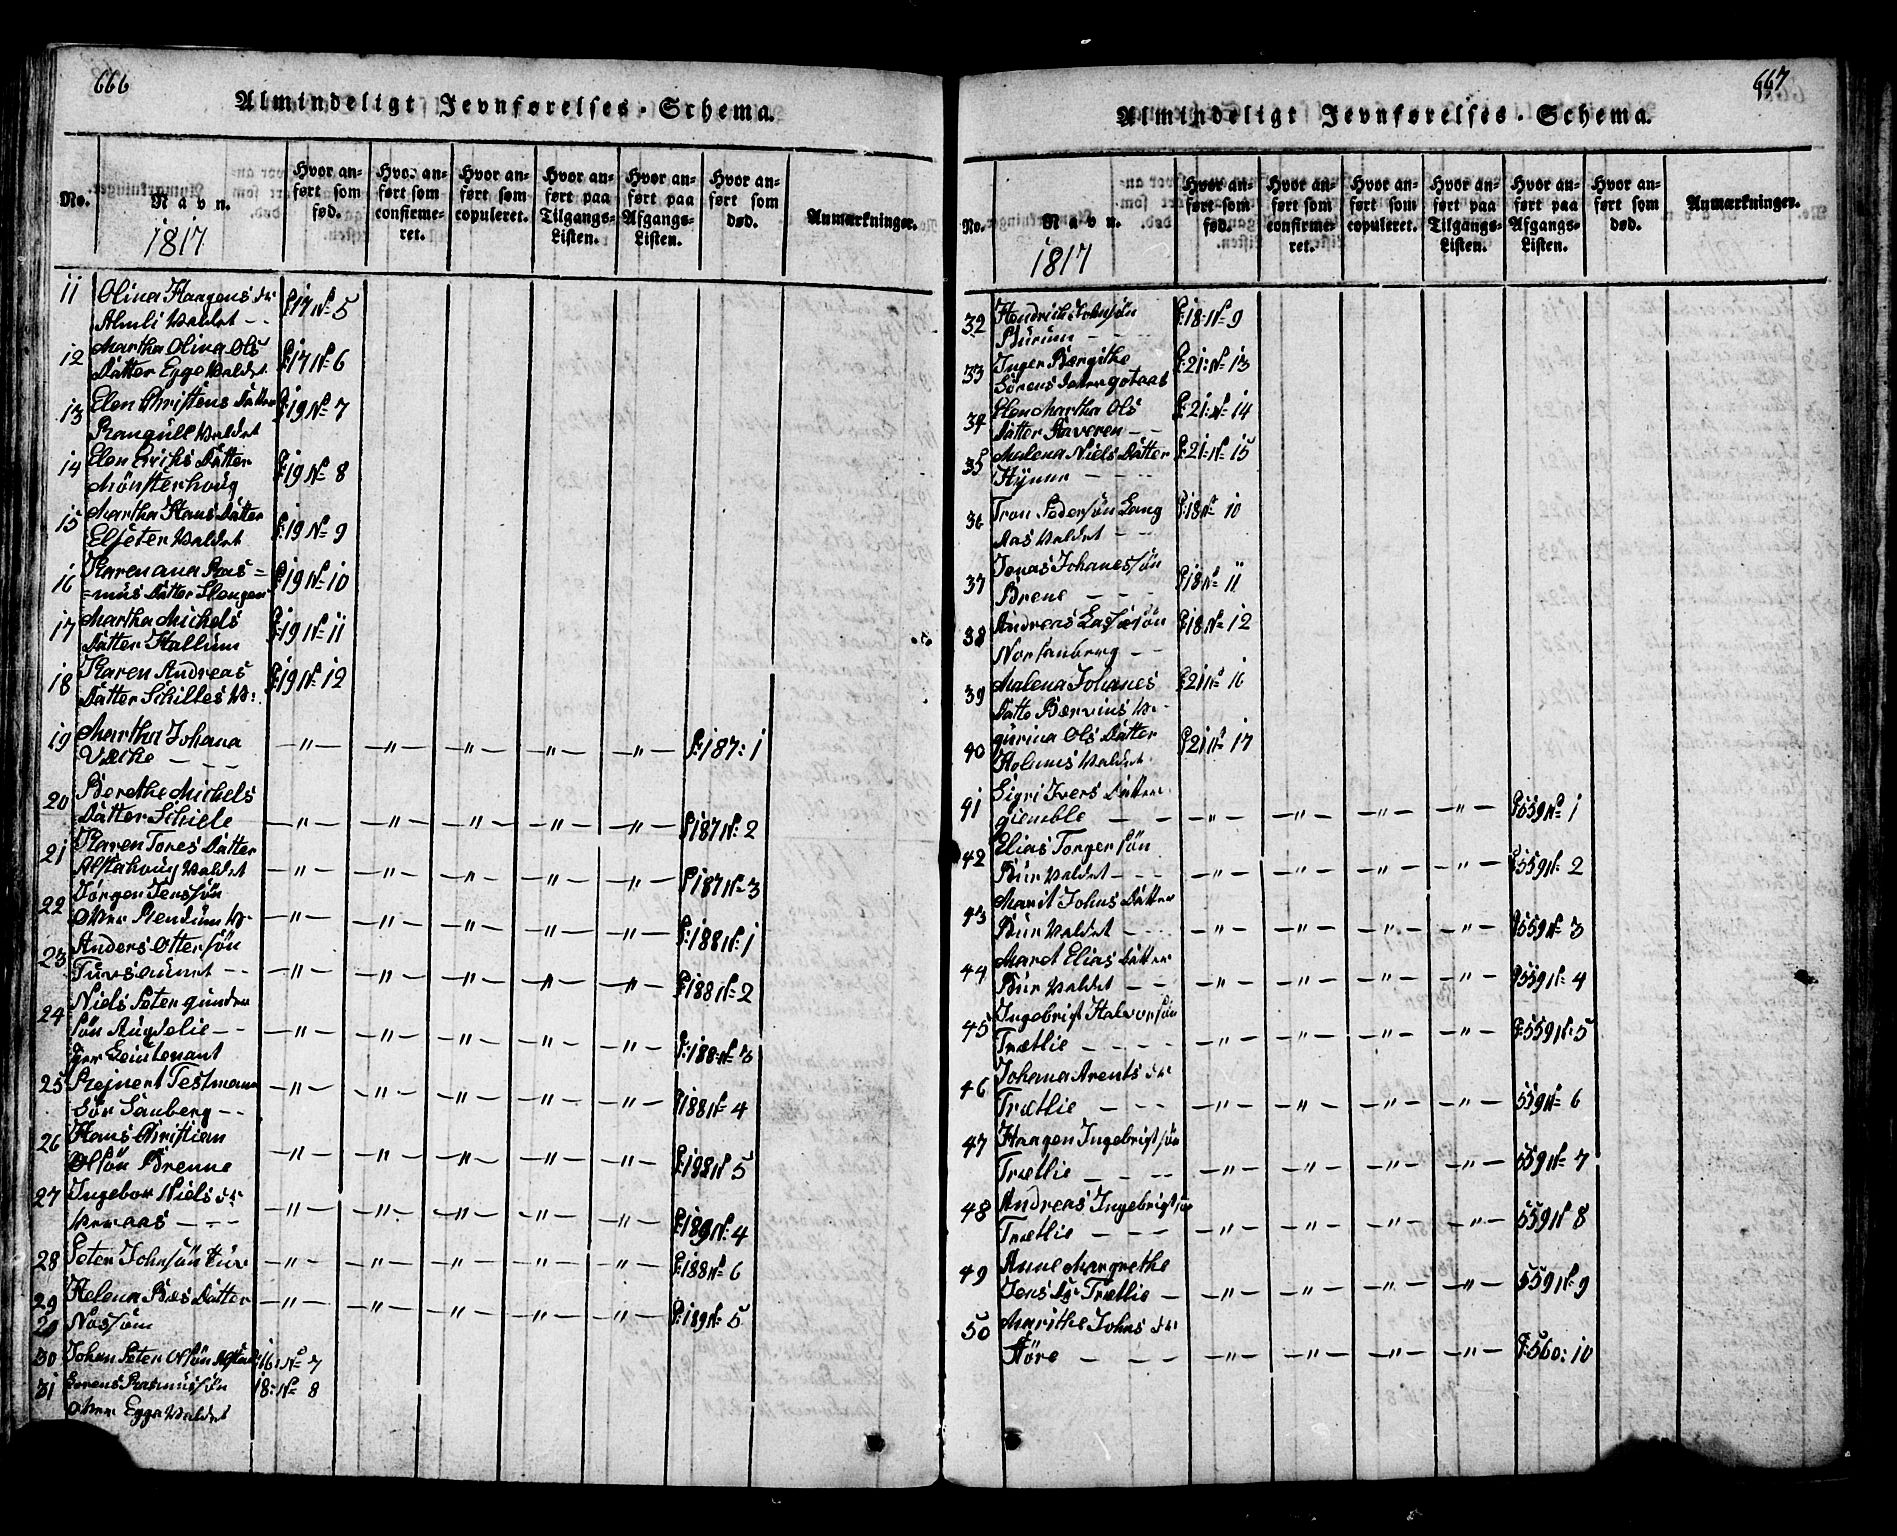 666
Almindeligt Jevnførelses-Schema.
No. Navn. Hvor anført som fød. Hvor anført som confirmeret. Hvor anført som copuleret. Hvor anført paa Tilgangs-Listen. Hvor anført paa Afgangs-Listen. Hvor anført som død. Anmærkninger.
1817
11 Olina Haagens dr
Almli Valdet - - P:17 No 5
12 Martha Olina Ols
Datter Egge Valdet P:17 No 6
13 Elen Christens Datter
Valdet P:19 No 7
14 Elen Erichs Datter
Mönsterhoug P:19 No 8
15 Martha Hans Datter
Elseter Valdet P:19 No 9
16 Karen ana Ras=
=mus Datter P:19 No 10
17 Martha Michels
Datter Hallum P:19 No 11
18 Karen Andreas
Datter Schilles V: P:19 No 12
19 Martha Johana
- - - — " — — " — — " — — " — — " — P:187: 1
20 Berethe Michels
Datter Schiele — " — — " — — " — — " — — " — P:187 No 2
21 Karen Tores Datter
Alstahoug Valdet — " — — " — — " — — " — — " — P:187 No 3
22 Jörgen Jenssön
— " — — " — — " — — " — — " — P:188 No 1
23 Anders Ottersön
- - — " — — " — — " — — " — — " — P:188 No 2
24 Niels Peter gunder
sön - - — " — — " — — " — — " — — " — P:188 No 3
Herr Leiutenant
25 Rejnert Testmann
Sör Sanberg - - — " — — " — — " — — " — — " — P:188 No 4
26 Hans Christian
Olsön Brenne — " — — " — — " — — " — — " — P:188 No 5
27 Ingebor Niels dr
- - - — " — — " — — " — — " — — " — P:189 No 4
28 Peter Johnsön — " — — " — — " — — " — — " — P:188 No 6
29 Helena Datter — " — — " — — " — — " — — " — P:189 No 5
29
30 Johan Peter Olsön 16: No 7
31 Sörens Rasmussön 18: No 8
Egge Valdet
667
Almindeligt Jevnførelses-Schema.
No. Navn. Hvor anført som fød. Hvor anført som confirmeret. Hvor anført som copuleret. Hvor anført paa Tilgangs-Listen. Hvor anført paa Afgangs-Listen. Hvor anført som død. Anmærkninger.
1817
32 Hendrich Johnsön
- P:18 No 9
33 Inger Bergithe
Sörens P:21: No 13
34 Elen Martha Ols
Datter - - P:21: No 14
35 Malena Niels Datter
- - - P:21: No 15
36 Tron Pedersön Lang
Aas Valdet - - P:18 No 10
37 Jonas Johanessön
Brene - - - P:18 No 11
38 Andreas
- - P:18 No 12
39 Malena Johanes
Datte P:21 No 16
40 gurina Ols Datter
Valdet P:21 No 17
41 Sigri Ivers Datter
- - - — " — — " — — " — — " — P:559 No 1
42 Elias Torgersön
Bür Valdet - - - — " — — " — — " — — " — P:559 No 2
43 Marit Johns Datter
Bür Valdet - - — " — — " — — " — — " — P:559 No 3
44 Maret Elias Datter
Bür Valdet - - — " — — " — — " — — " — P:559 No 4
45 Ingebrigt Halvorsön
Trætlie - - - - — " — — " — — " — — " — P:559 No 5
46 Johana Arents dr
Trætlie - - - — " — — " — — " — — " — 559 No 6
47 Haagen Ingebrigtsön
Trætlie - - - - — " — — " — — " — — " — 559 No 7
48 Andreas Ingebrigtsön
Trætlie - - - — " — — " — — " — — " — 559 No 8
49 Anne Margrethe
Jens Dr Trætlie - — " — — " — — " — — " — 559 No 9
50 Marithe Johns dr
- - - — " — — " — — " — — " — P:560: 10